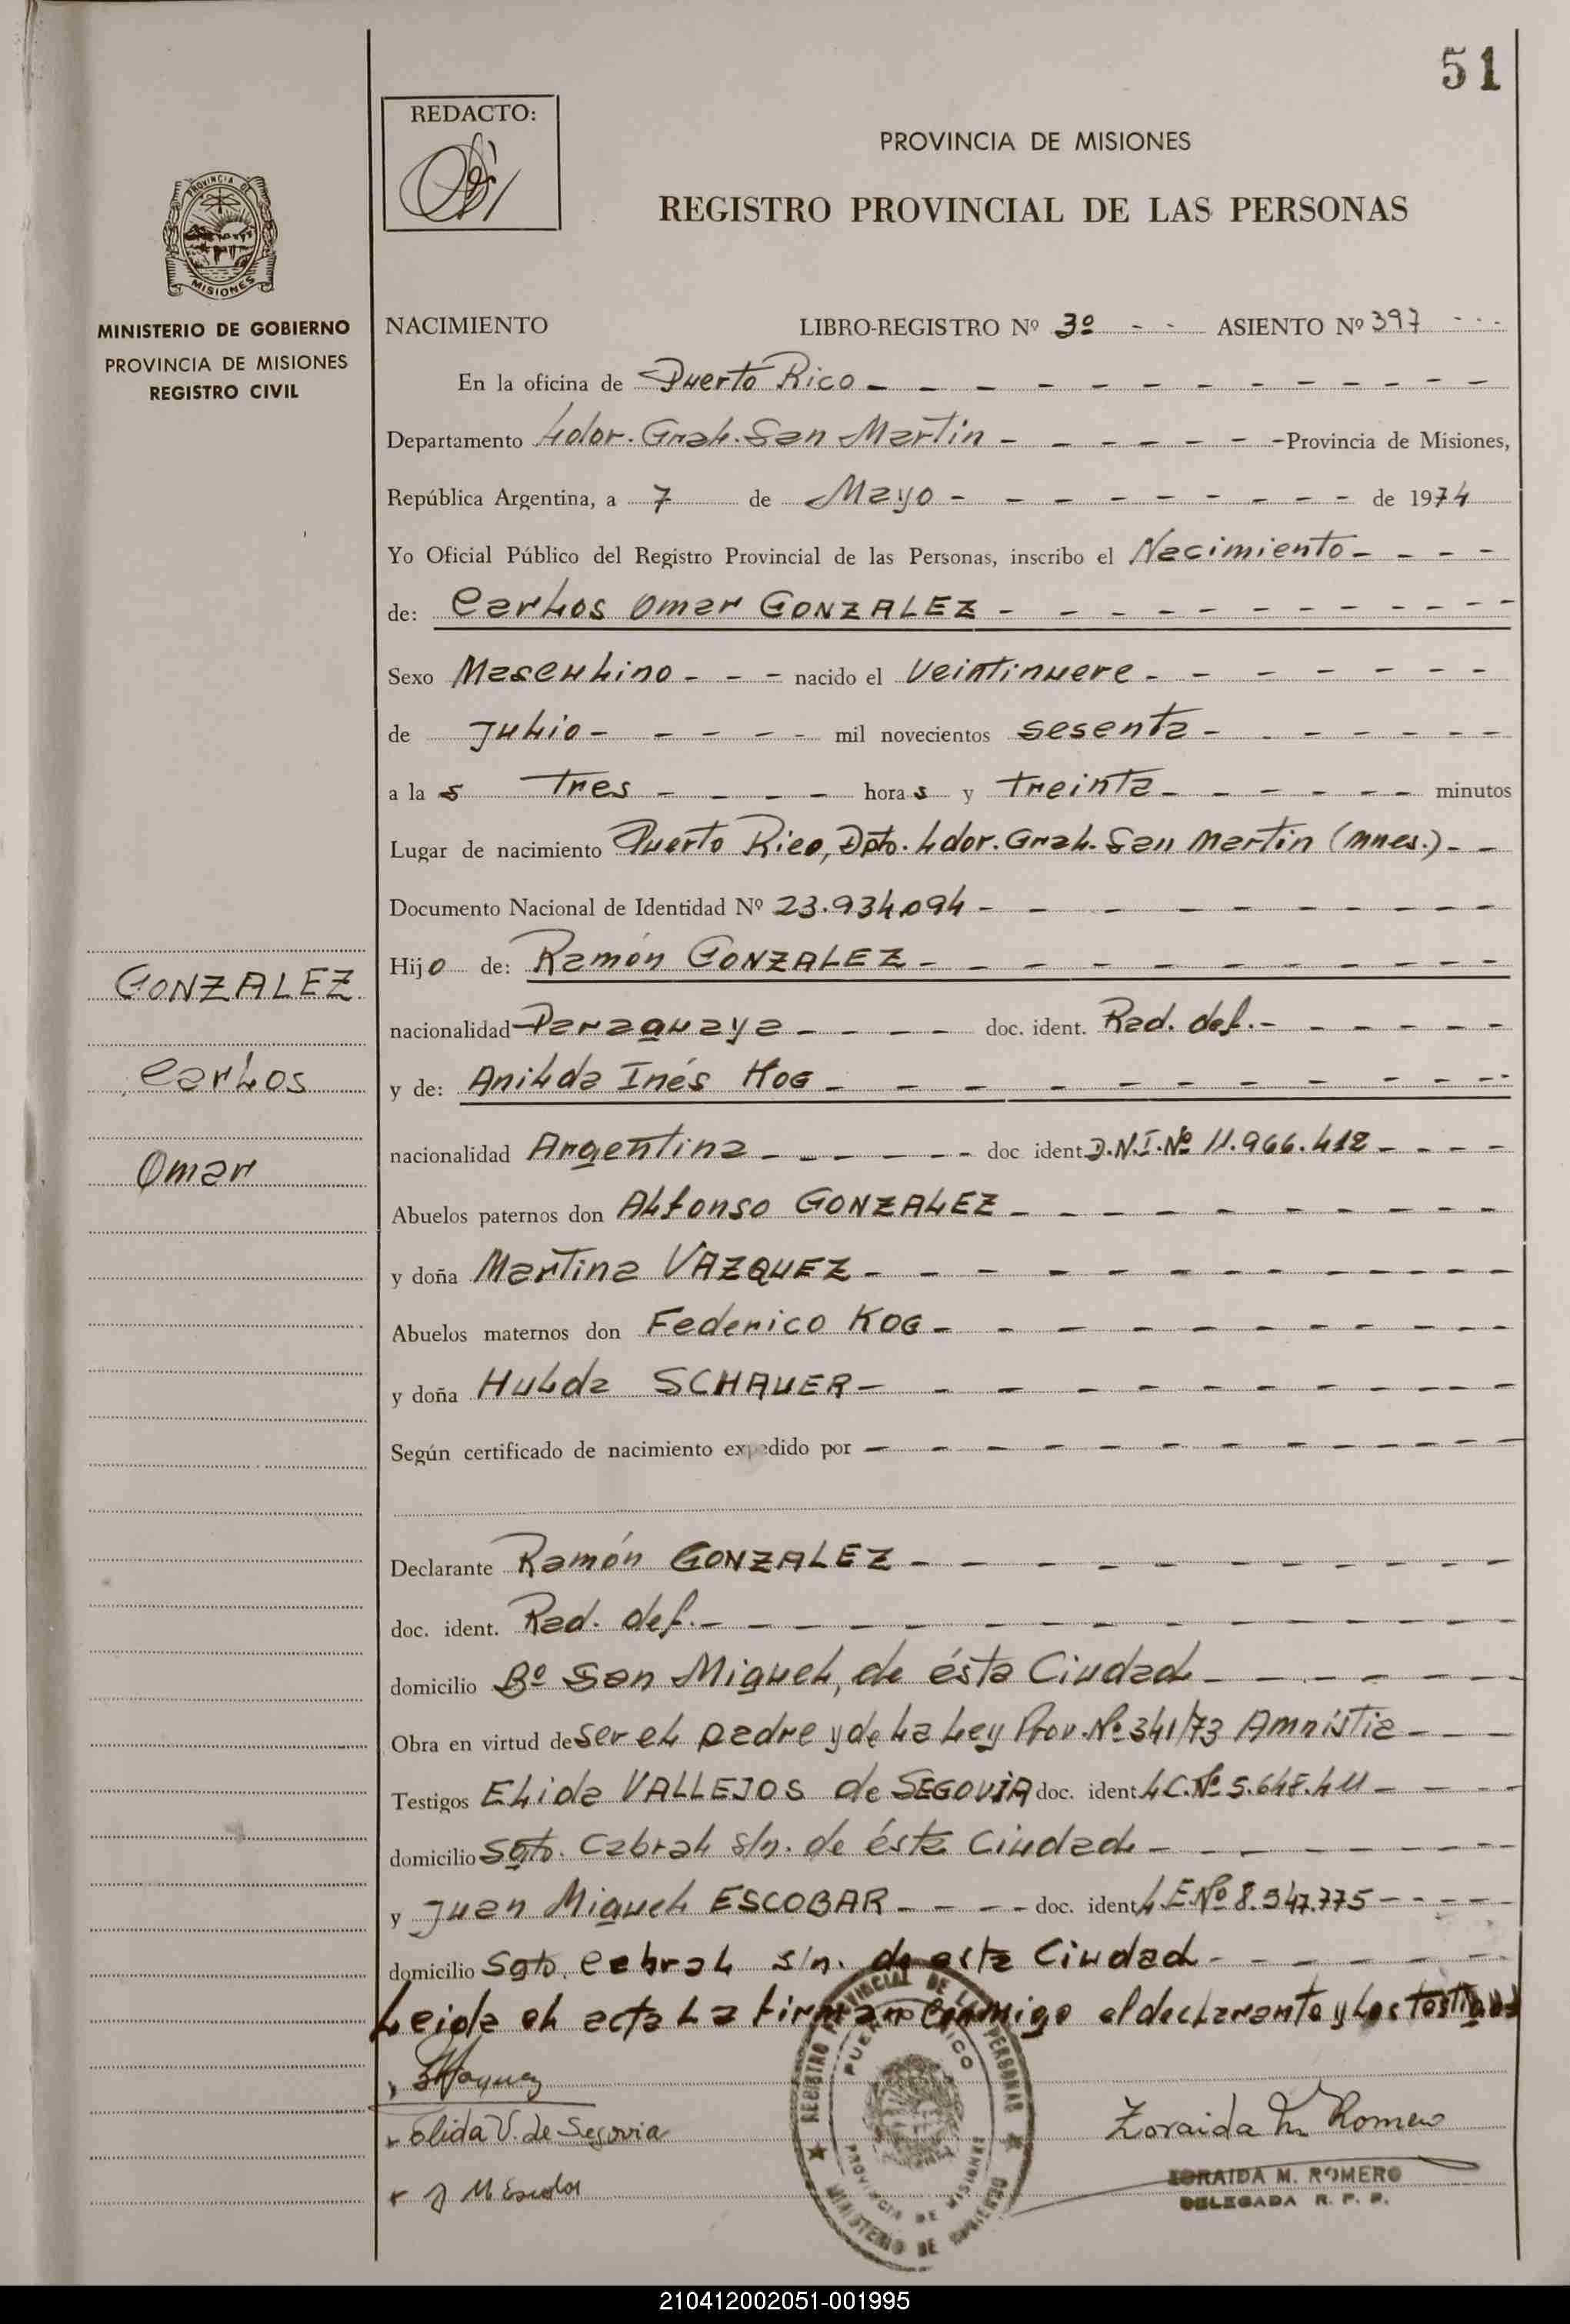 51
REDACTO:
PROVINCIA DE MISIONES
REGISTRO PROVINCIAL DE LAS PERSONAS
PROVINCIA DE
MISIONES
MINISTERIO DE GOBIERNO
PROVINCIA DE MISIONES
REGISTRO CIVIL
NACIMIENTO LIBRO-REGISTRO Nº 3º - - ASIENTO Nº 397 - - -
En la oficina de Puerto Rico
Departamento Ldor. Gral. San Martin - Provincia de Misiones,
República Argentina, a 7 de Mayo - de 1974
Yo Oficial Público del Registro Provincial de las Personas, inscribo el Nacimiento
de: Carlos Omar GONZALEZ
Sexo Masculino - - - nacido el Veintinueve
de Julio - mil novecientos sesenta
a la s tres - hora s y treinta - minutos
Lugar de nacimiento Puerto Rico, Dpto. Ldor. Gral. San Martin (Mnes.)
Documento Nacional de Identidad Nº 23.934.094
Hijo de: Ramón GONZALEZ
nacionalidad Paraguaya - doc. ident. Rad. def.
y de: Anilda Inés KOG
nacionalidad Argentina - doc ident D.N.I. Nº 11.966.412
Abuelos paternos don Alfonso GONZALEZ
y doña Martina VAZQUEZ
Abuelos maternos don Federico KOG
y doña Hulda SCHAUER
Según certificado de nacimiento expedido por
Declarante Ramón GONZALEZ
doc. ident. Rad. def.
domicilio Bº San Miguel, de ésta Ciudad
Obra en virtud de ser el padre y de la Ley Prov. Nº 341/73 Amnistia
Testigos Elida VALLEJOS de SEGOVIA doc. ident L.C. Nº 5.648.411
domicilio Sgto. Cabral s/n. de ésta Ciudad
y Juan Miguel ESCOBAR - doc. ident L.E. Nº 8.547.775
domicilio Sgto. Cabral s/n. de esta Ciudad
Leida el acta la firman conmigo el declarante y los testigos
GONZALEZ
Carlos
Omar
Elida V. de Segovia
Zoraida M. Romero
ZORAIDA M. ROMERO
DELEGADA R. P. P.
REGISTRO PROVINCIAL DE LAS PERSONAS
PUERTO RICO
PROVINCIA DE MISIONES
MINISTERIO DE GOBIERNO
210412002051-001995